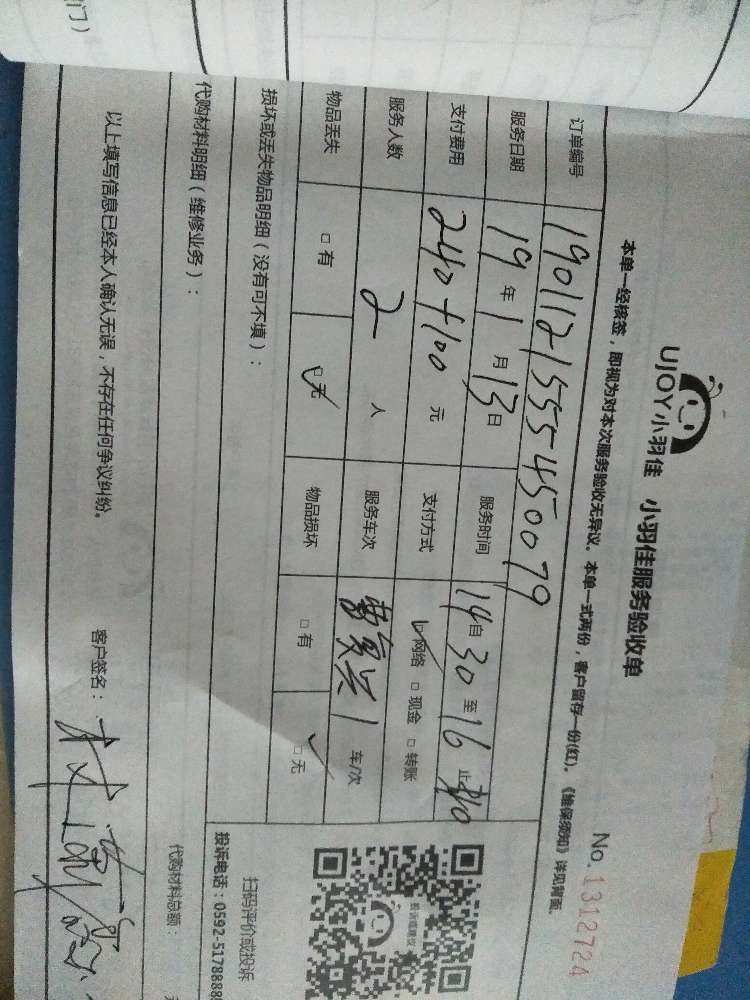 UJOY小羽佳 小羽佳服务验收单
No.1312724
本单一经核签，即视为对本次服务验收无异议。本单一式两份，客户留存一份(红)。《维保须知》详见背面。
订单编号 1901121555450079
服务日期 19年1月13日 服务时间 14自30至16止
支付费用 240+100元 支付方式 ☑网络 □现金 □转账
服务人数 2人 服务车次 1车/次
物品丢失 □有 ☑无 物品损坏 □有 ☑无
损坏或丢失物品明细（没有可不填）：
扫码评价或投诉
投诉电话：0592-5178888
代购材料明细（维修业务）：
代购材料总额：
以上填写信息已经本人确认无误，不存在任何争议纠纷。 客户签名：
门）